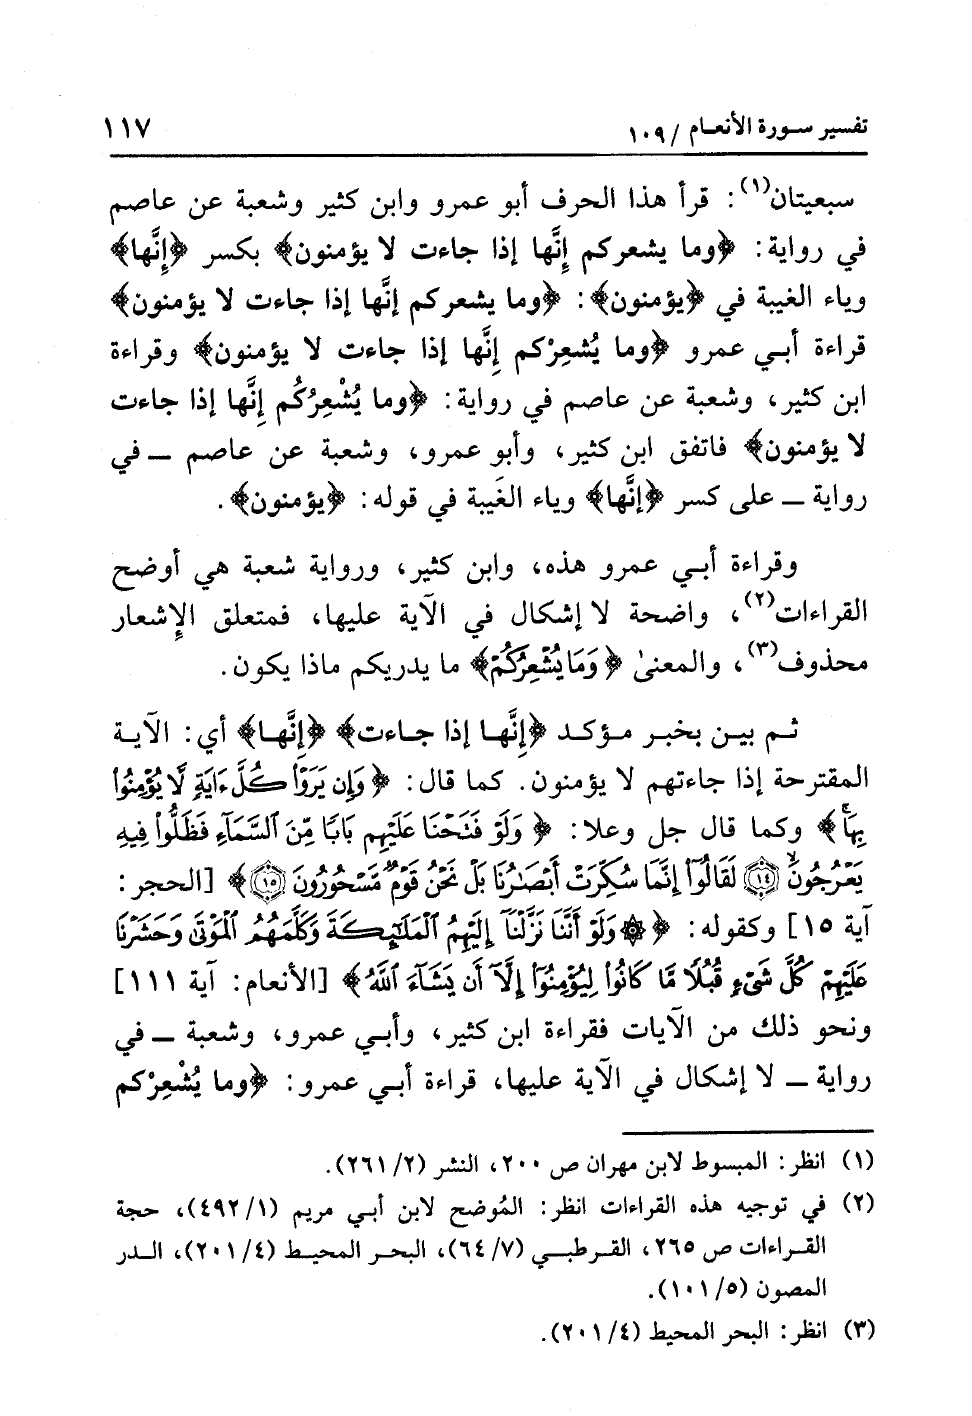 تفسير سورة الأنعام / ١٠٩ ١١٧
سبعيتان(١): قرأ هذا الحرف أبو عمرو وابن كثير وشعبة عن عاصم
في رواية: ﴿وما يشعركم إِنَّها إذا جاءت لا يؤمنون﴾ بكسر ﴿إِنَّها﴾
وياء الغيبة في ﴿يؤمنون﴾: ﴿وما يشعركم إنَّها إذا جاءت لا يؤمنون﴾
قراءة أبي عمرو ﴿وما يُشعِرْكم إِنَّها إذا جاءت لا يؤمنون﴾ وقراءة
ابن كثير، وشعبة عن عاصم في رواية: ﴿وما يُشْعِرُكُم إِنَّها إذا جاءت
لا يؤمنون﴾ فاتفق ابن كثير، وأبو عمرو، وشعبة عن عاصم ــ في
رواية ــ على كسر ﴿إنَّها﴾ وياء الغَيبة في قوله: ﴿يؤمنون﴾.
وقراءة أبي عمرو هذه، وابن كثير، ورواية شعبة هي أوضح
القراءات(٢)، واضحة لا إشكال في الآية عليها، فمتعلق الإِشعار
محذوف(٣)، والمعنىٰ ﴿وَمَا يُشْعِرُكُمْ﴾ ما يدريكم ماذا يكون.
ثم بين بخبر مؤكد ﴿إِنَّها إذا جاءت﴾ ﴿إِنَّها﴾ أي: الآية
المقترحة إذا جاءتهم لا يؤمنون. كما قال: ﴿وَإِن يَرَوْا۟ كُلَّ ءَايَةٍ لَّا يُؤْمِنُوا۟
بِهَا ۚ﴾ وكما قال جل وعلا: ﴿وَلَوْ فَتَحْنَا عَلَيْهِم بَابًا مِّنَ ٱلسَّمَآءِ فَظَلُّوا۟ فِيهِ
يَعْرُجُونَ ۙ ﴿١٤﴾ لَقَالُوٓا۟ إِنَّمَا سُكِّرَتْ أَبْصَـٰرُنَا بَلْ نَحْنُ قَوْمٌ مَّسْحُورُونَ ﴿١٥﴾﴾ [الحجر:
آية ١٥] وكقوله: ﴿۞ وَلَوْ أَنَّنَا نَزَّلْنَآ إِلَيْهِمُ ٱلْمَلَـٰٓئِكَةَ وَكَلَّمَهُمُ ٱلْمَوْتَىٰ وَحَشَرْنَا
عَلَيْهِمْ كُلَّ شَىْءٍ قُبُلًا مَّا كَانُوا۟ لِيُؤْمِنُوٓا۟ إِلَّآ أَن يَشَآءَ ٱللَّهُ﴾ [الأنعام: آية ١١١]
ونحو ذلك من الآيات فقراءة ابن كثير، وأبي عمرو، وشعبة ــ في
رواية ــ لا إشكال في الآية عليها، قراءة أبي عمرو: ﴿وما يُشْعِرْكم
(١) انظر: المبسوط لابن مهران ص ٢٠٠، النشر (٢/ ٢٦١).
(٢) في توجيه هذه القراءات انظر: المُوضح لابن أبي مريم (١/ ٤٩٢)، حجة
القراءات ص ٢٦٥، القرطبي (٧/ ٦٤)، البحر المحيط (٤/ ٢٠١)، الدر
المصون (٥/ ١٠١).
(٣) انظر: البحر المحيط (٤/ ٢٠١).